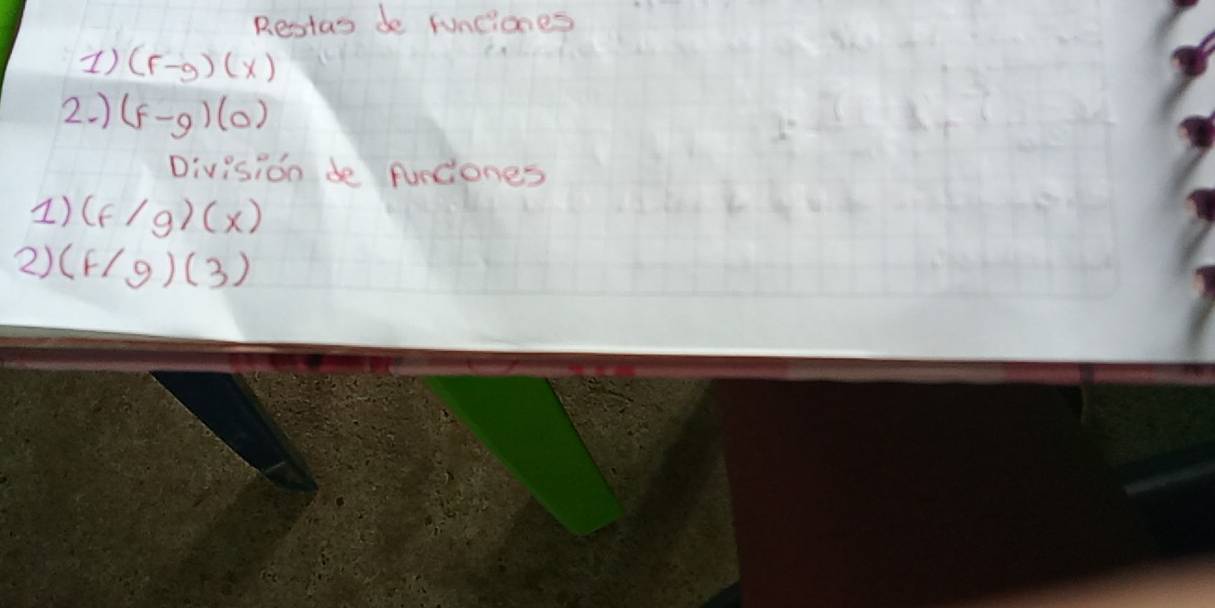 Restas de funciones
1) (f-g)(x)
2.) (f-g)(0)
División de funciones
1) (f/g)(x)
2) (f/g)(3)